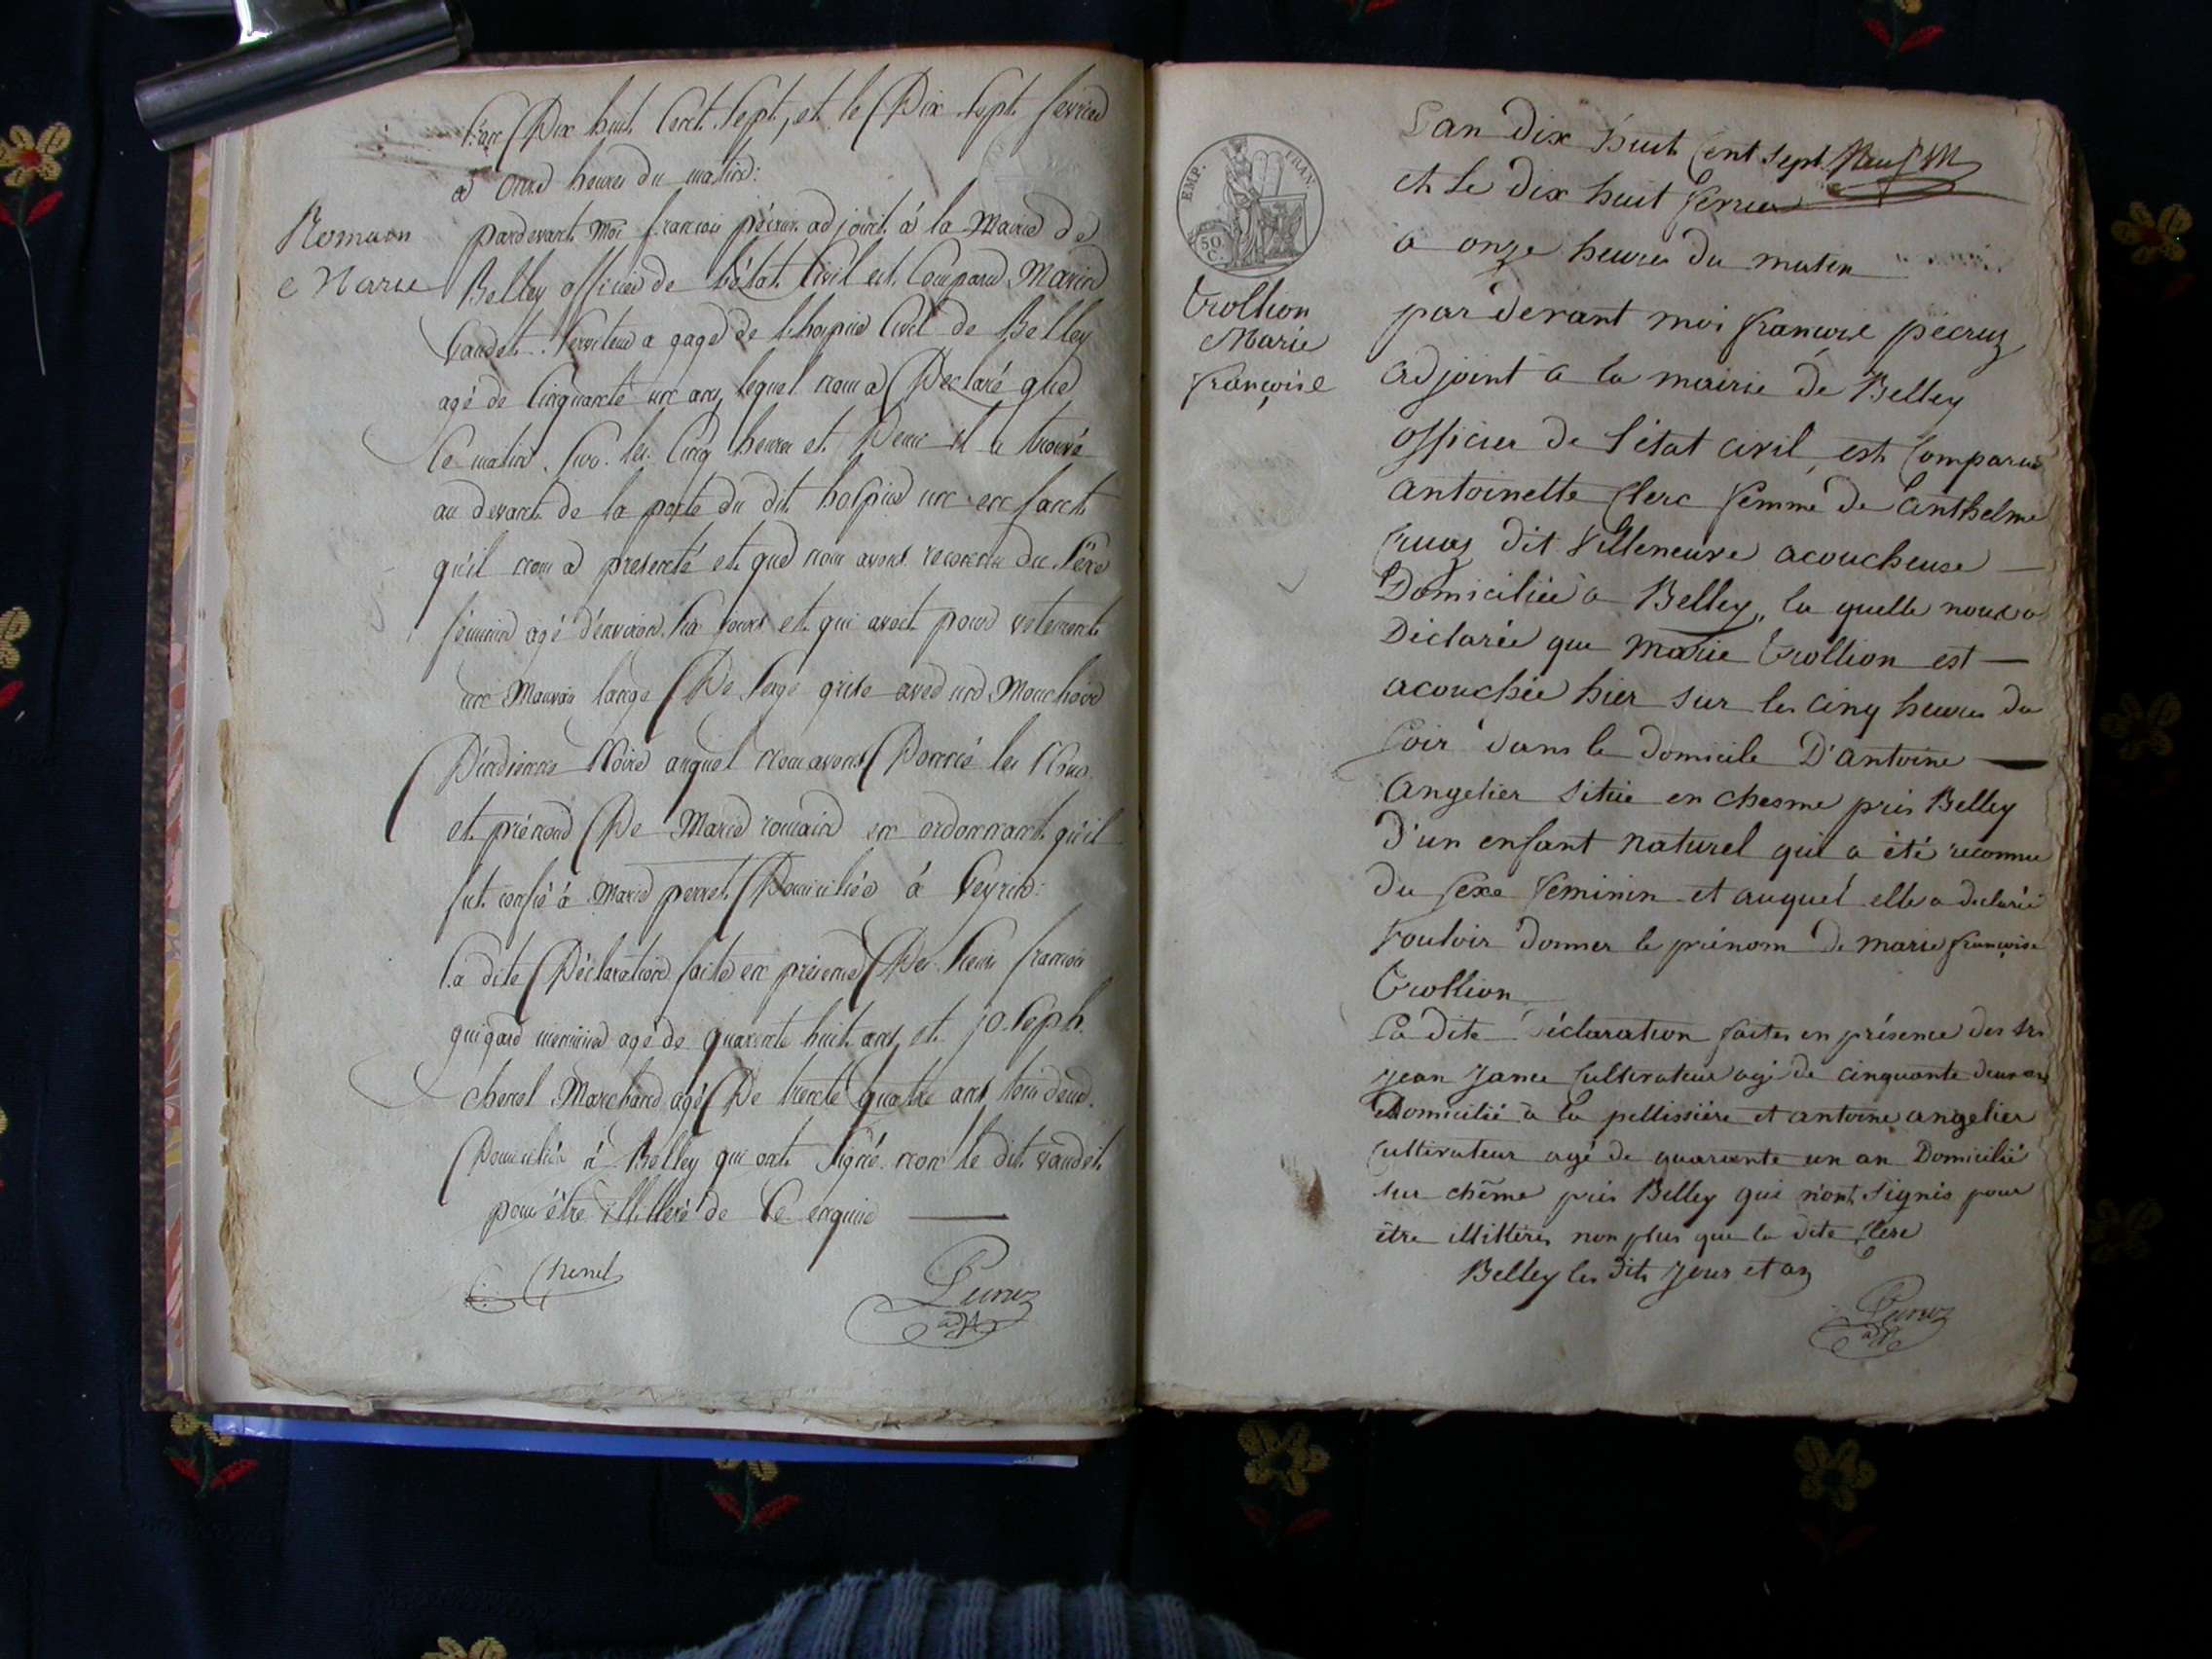 L'an Dix huit Cent Sept, et le Dix Sept fevrier
a onze heures du matin:
Romain
Marie
pardevant moi françois pécruz adjoint à la Mairie de
Belley officier de l'état Civil est Comparu Marin
Vaudet Serviteur a gage de l'hospice Civil de Belley
agé de Cinquante un ans, lequel nous a Déclaré que
Ce matin sur les Cinq heures et Demi il a trouvé
au devant de la porte du dit hospice un enfant
qu'il nous a presenté et que nous avons reconnu du Sexe
féminin agé d'environ six jours et qui avoit pour vetement
un Mauvais lange De Serge grise avec un Mouchoir
D'indienne Noire auquel nous avons Donné les Nom
et prénoms De Marie romain en ordonnant qu'il
fut confié à Marie perret Domiciliée à Veyrin:
La dite Déclaration faite en présence Des Sieurs françois
guigard menuisier agé de quarante huit ans et joseph
chenel Marchand agé De trente quatre ans tous deux
Domiciliés à Belley qui ont Signé non le dit vaudet
pour être illitteré de Ce enquis
Chenel
Pecruz
adj
EMP. FRAN.
50 C.
L'an Dix huit Cent Sept
et le Dix huit fevrier
a onze heures du matin
Trollion
Marie
françoise
par devant moi françois pécruz
adjoint à la mairie de Belley
officier de l'état civil, est Comparue
antoinette Clerc femme de anthelme
Cuaz dit Villeneuve acoucheuse
Domiciliée a Belley, la quelle nous a
Déclarée que Marie Trollion est
acouchée hier sur les cinq heures du
Soir dans le Domicile D'antoine
Angelier située en chesme près Belley
D'un enfant naturel qui a été reconnu
du Sexe feminin et auquel elle a declarée
vouloir donner le prénom de marie françoise
Trollion
La dite Déclaration faites en présence des Srs
jean Cultivateur agé de cinquante deux ans
Domicilié à la pellissière et antoine angelier
Cultivateur agé de quarante un an Domicilié
sur chême près Belley qui n'ont signés pour
être illittéres non plus que la dite Clerc
Belley les dits jour et an
Pecruz
adj